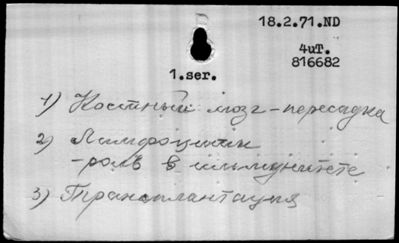 18.2.71.ND
4uT.
816682
1.ser.
1) Костный мозг - пересадка
2) Лимфоциты
- роль в иммунитете
3) Трансплантация